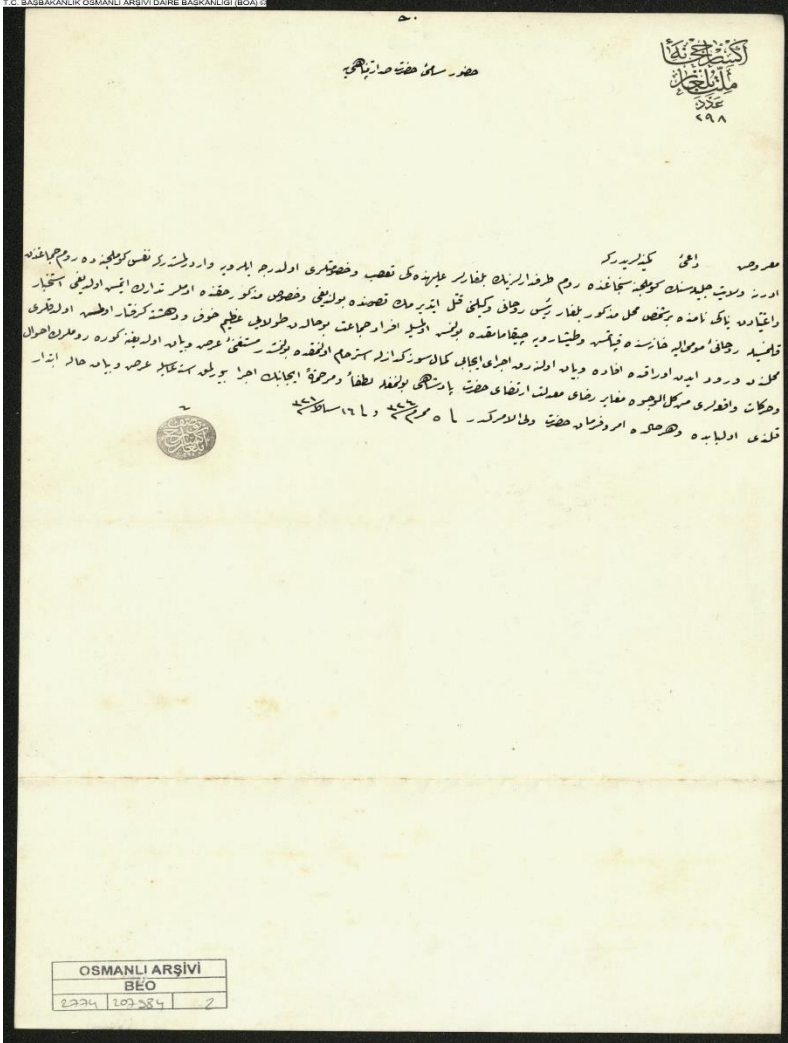 T.C. BAŞBAKANLIK OSMANLI ARŞİVİ DAİRE BAŞKANLIĞI (BOA)
اكسارخانهٔ
ملت بلغار
عدد
٢٩٨
حضور سامئ حضرت صدارتپناهی یه
معروض داعئ كمینه لریدر كه
ادرنه ولایت جلیله سنك كوملجنه سنجاغنده روم طرفدارلرینك بلغارلر علیهنده كی تعصب و خصومتلری اول درجه ایلرویه واردیرلمشدر كه نفس كوملجنه ده روم جماعتندن
یانكی نامنده بر شخص محل مذكور بلغار رئیس روحانی وكیلنی قتل ایتدیرمك قصدنده بولندیغی و خصوص مذكور حقنده آدملر تدارك ایتمش اولدیغی استخبار
قلنمسیله روحانئ مومی الیه خانه سنده قپانمش و طیشارویه چیقامامقده بولنمش اولمسیله افراد جماعت بو حالدن طولایی عظیم خوف و دهشته گرفتار اولمش اولدقلری
محلندن ورود ایدن اوراقده افاده و بیان اولنه رق اجرای ایجابی كمال سوز و گدازله استرحام اولنمقده بولنمشدر مستغنئ عرض و بیان اولدیغنه كوره روملرك احوال
و حركات واقعه لری من كل الوجوه مغایر رضای معدلت ارتضای حضرت پادشاهی بولنمغله لطفاً و مرحمةً ایجابنك اجرا بیورلمسی عرض و بیان حاله ابتدار
قلندی اولبابده و هر حالده امر و فرمان حضرت ولی الامركدر فی ٥ محرم ٣٢٤ و فی ١٦ شباط ٣٢١
OSMANLI ARŞİVİ
BEO
2774 207984 2